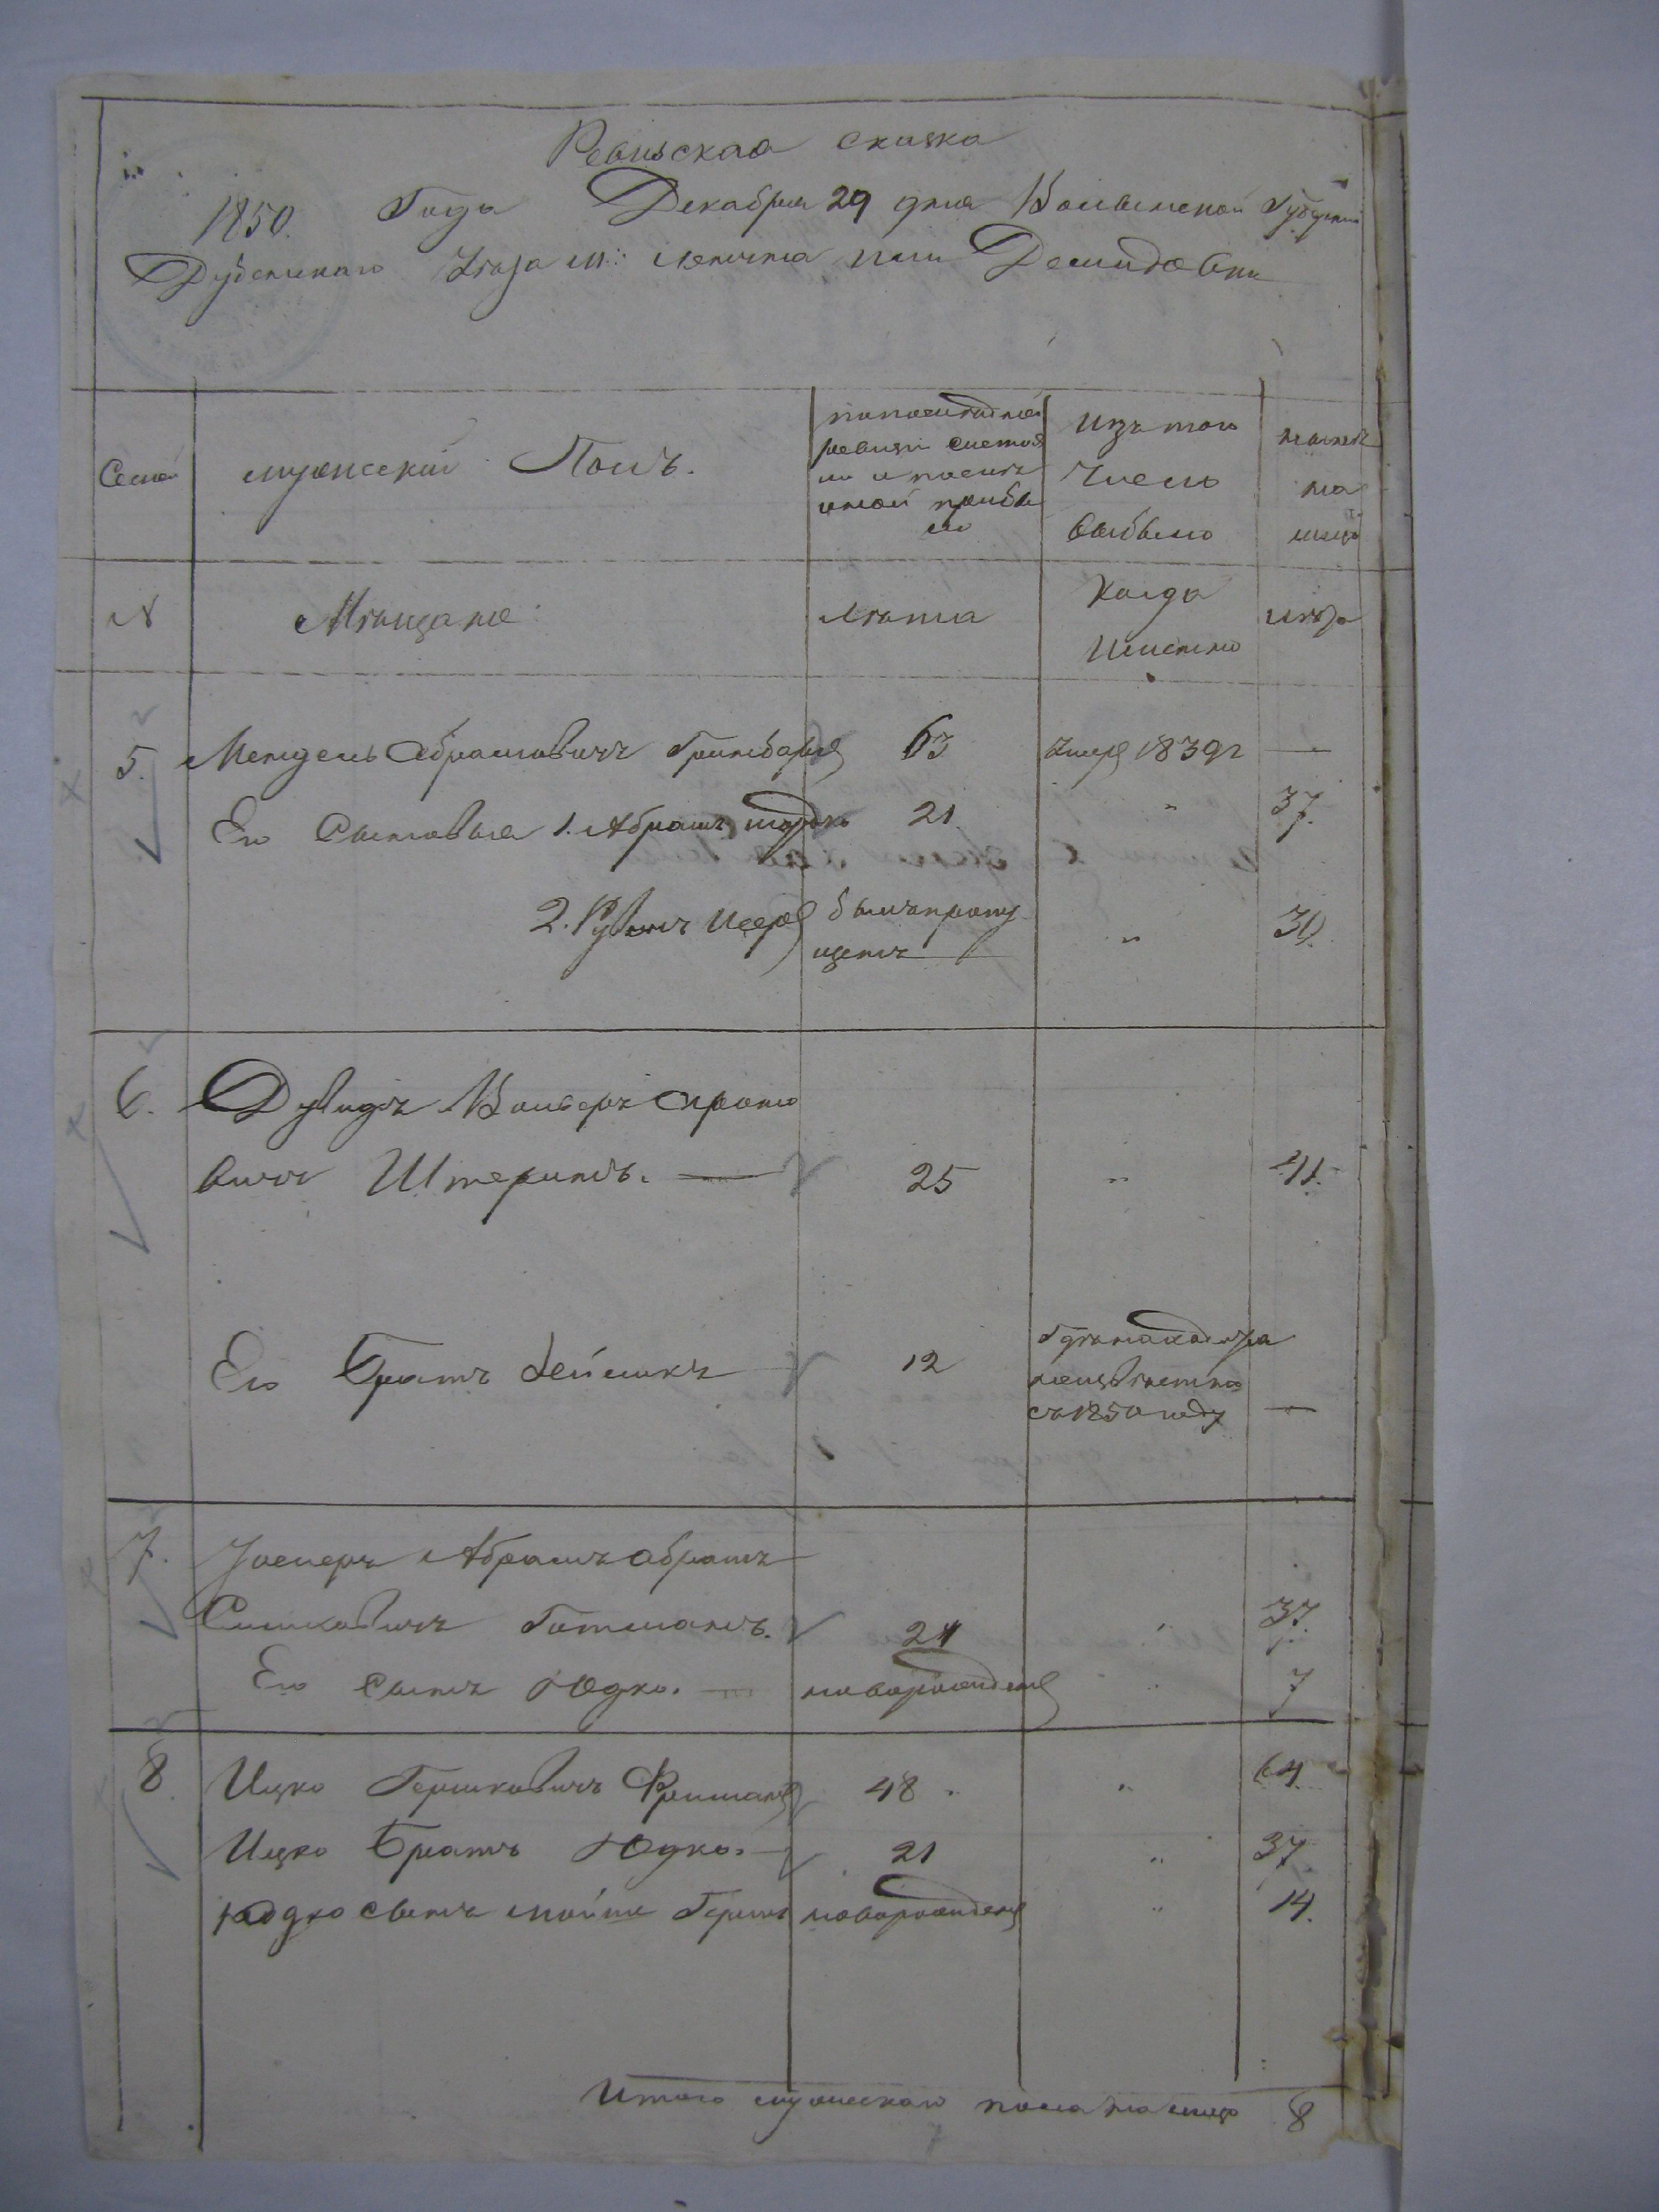 Ревизская сказка
1850. Года Декабря 29 дня Волынской Губернии
Дубенскаго Уезда м: или Демидовки
Семей
мужеский Полъ.
по последней
ревизіи состоя
ло и после
оной прибы
ло
Изъ того
Число
выбыло
ныне
на
лицо
N
Мѣщане
лѣта
Когда
Именно
лѣта
5. Мендель Абрамовичъ 63 умеръ 1839г —
Его Сыновья 1. Абрамъ 21 " 37.
2. Рувинъ былъ пропу " 30.
щенъ
6. Дувидъ Вольверъ Сроло
вичъ Штернъ. — 25 " 41.
Его Братъ Лейзикъ 12 где находится
неизвѣстно
съ 1850 году —
7. Абрамъ
Симковичъ Готманъ. 21 " 37.
Его сынъ Юдко. — новорожденъ " 7
8 Ицко Гершковичъ Фришманъ 48 " 64
Ицко Братъ Юдко. — 21 " 37
Юдко сынъ новорожденъ " 14.
Итого мужескаго пола на лицо 8